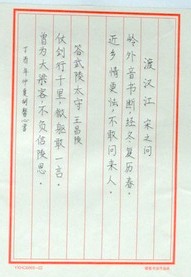 渡汉江 宋之问
岭外音书断,经冬复历春。
近乡情更怯,不敢问来人。
答武陵太守 王昌龄
仗剑行千里,微躯敢一言。
曾为大梁客,不负信陵恩。
丁酉年仲夏 书